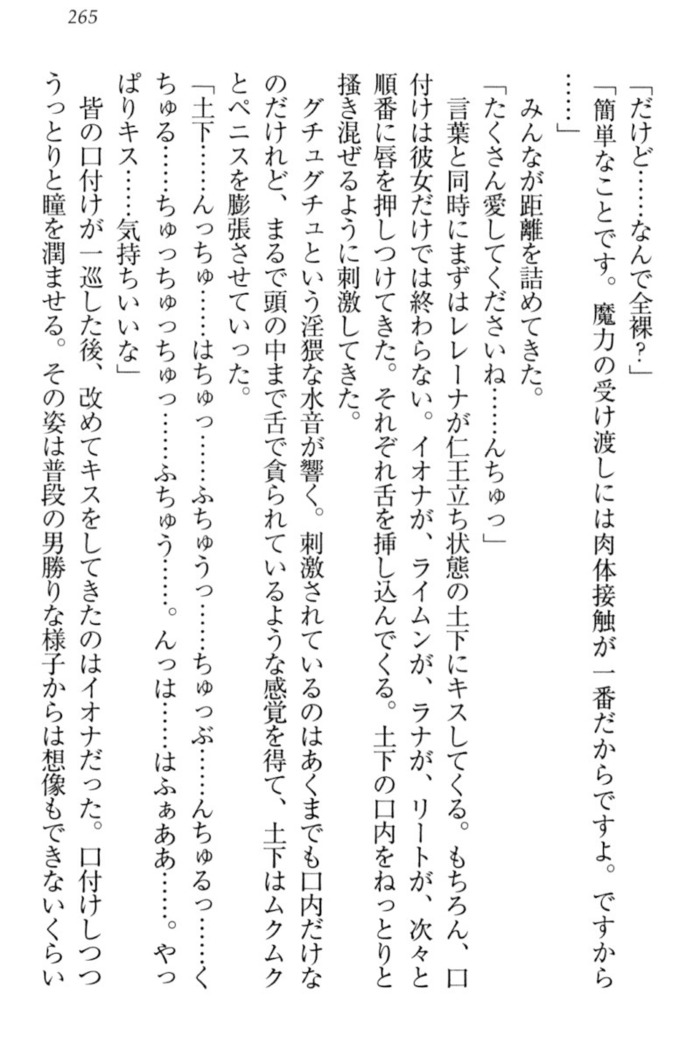 265
「だけど……なんで全裸？」
「簡単なことです。魔力の受け渡しには肉体接触が一番だからですよ。ですから
……」
みんなが距離を詰めてきた。
「たくさん愛してくださいね……んちゅっ」
言葉と同時にまずはレレーナが仁王立ち状態の土下にキスしてくる。もちろん、口
付けは彼女だけでは終わらない。イオナが、ライムンが、ラナが、リートが、次々と
順番に唇を押しつけてきた。それぞれ舌を挿し込んでくる。土下の口内をねっとりと
掻き混ぜるように刺激してきた。
グチュグチュという淫猥な水音が響く。刺激されているのはあくまでも口内だけな
のだけれど、まるで頭の中まで舌で貪られているような感覚を得て、土下はムクムク
とペニスを膨張させていった。
「土下……んっちゅ……はちゅっ……ふちゅうっ……ちゅっぶ……んちゅるっ……く
ちゅる……ちゅっちゅっちゅっ……ふちゅう……。んっは……はふぁああ……。やっ
ぱりキス……気持ちいいな」
皆の口付けが一巡した後、改めてキスをしてきたのはイオナだった。口付けしつつ
うっとりと瞳を潤ませる。その姿は普段の男勝りな様子からは想像もできないくらい